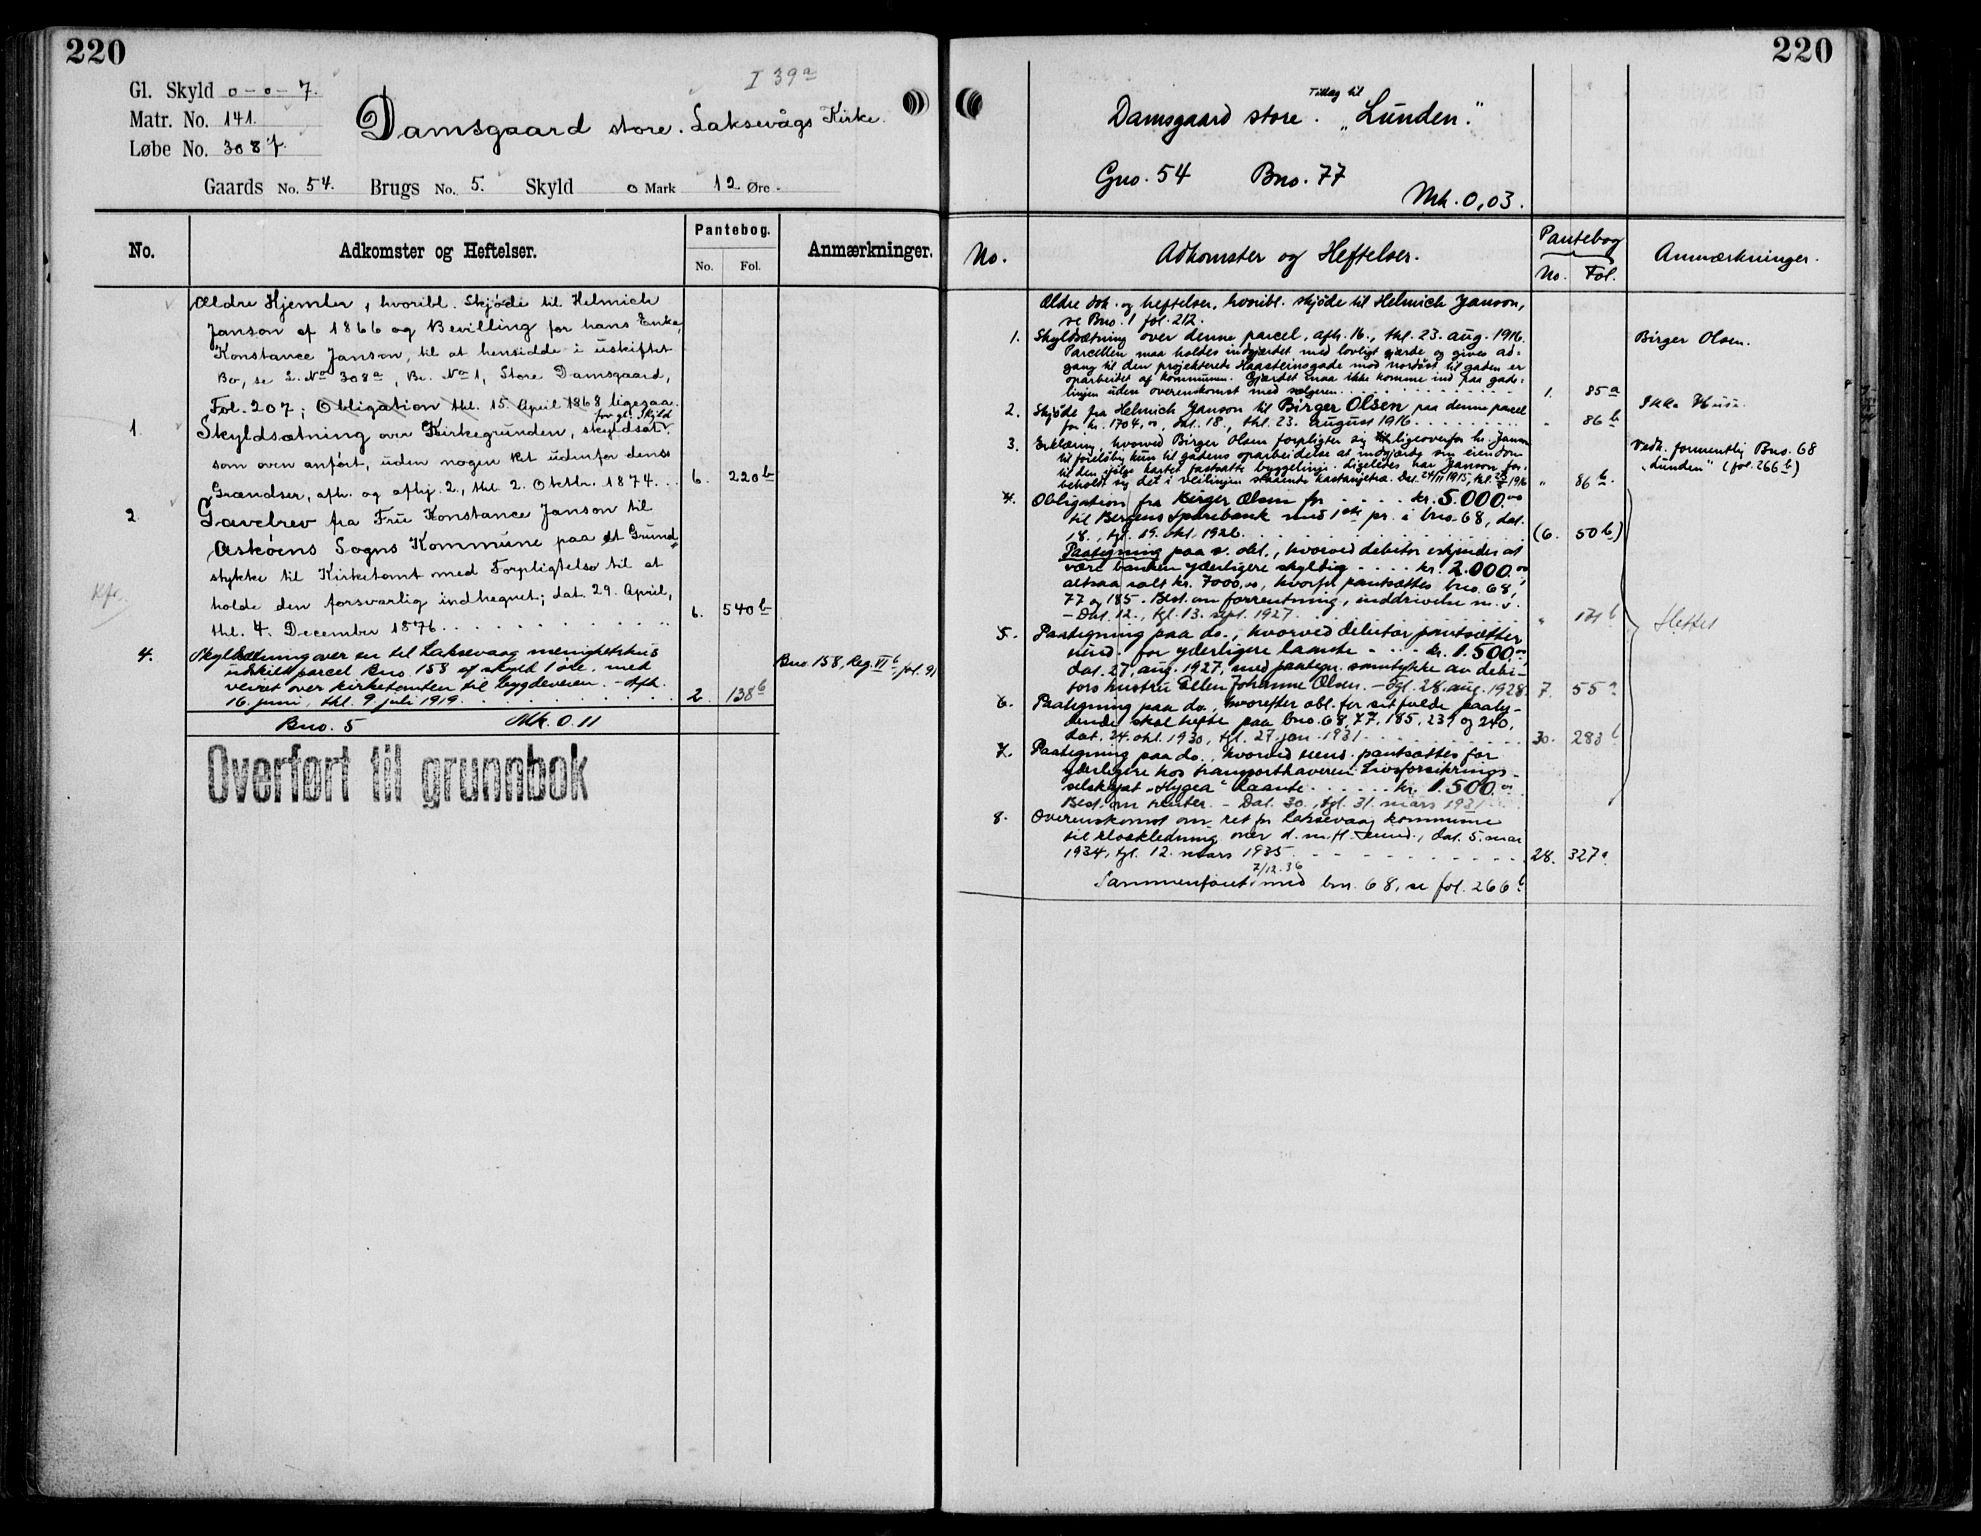 220
I 39a
Gl. Skyld 0-0-7.
Matr. No. 141.
Løbe No. 308f.
Damsgaard store. Laksevågs Kirke.
Gaards No. 54. Brugs No. 5. Skyld 0 Mark 12 Øre.
No.
Adkomster og Heftelser.
Pantebog.
No. Fol.
Anmærkninger.
Ældre Hjemler, hvoribl. Skjöde til Helmich
Janson af 1866 og Bevilling for hans Enke,
Konstance Janson, til at hensidde i uskiftet
Bo, se L. No 308a, Br. No 1, Store Damsgaard,
Fol. 207; Obligation thl. 15. April 1868 ligesaa.
for gl. Skyld
1. Skyldsætning over Kirkegrunden, skyldsat
som oven anfört, uden nogen Ret udenfor dens
Grændser, afh. og afhj. 2., thl. 2. Oktbr. 1874. . . 6. 220b
2. Gavebrev fra Frue Konstance Janson til
Askøens Sogns Kommune paa et Grund-
stykke til Kirketomt med Forpligtelse til at
holde den forsvarlig indhegnet; dat. 29. April,
thl. 4. December 1876 . . . 6. 540b
4. Skyldsætning over en til Laksevaag menighetshus
utskilt parcel Bno 158 af skyld 1 øre, med
veiret over kirketomten til bygdeveien. - Afh.
16. juni, thl. 9 juli 1919 . . . 2. 138b
Bno. 158, Reg. VI b. fol. 91
Bno. 5 Mk. 0.11
Overført til grunnbok
220
Tillæg til
Damsgaard store. "Lunden".
Gno. 54 Bno. 77
Mk. 0,03.
No.
Adkomster og Heftelser.
Pantebog
No. Fol.
Anmærkninger.
Ældre dok. og heftelser, hvoribl. skjøde til Helmich Janson,
se Bno. 1 fol. 212.
1. Skyldsætning over denne parcel, afh. 16., thl. 23. aug. 1916.
Parcellen maa holdes indgjærdet med lovligt gjærde og gives ad-
gang til den projekterte Haasteinsgade mod nordöst til gaden er
oparbeidet af kommunen. Gjærdet maa ikke komme ind paa gade-
linjen uden overenskomst med sælgeren . . . 1. 85a
Birger Olsen.
2. Skjøde fra Helmich Janson til Birger Olsen paa denne parcel
for kr. 1704,00, dat. 18., thl. 23. august 1916 . . . " 86b
Ikke Huse.
3. Erklæring, hvorved Birger Olsen forpligter sig ligeoverfor hr. Janson
til foreløbig kun til gadens oparbeidelse at indgjærde sin eiendom
til den ifølge kartet fastsatte byggelinje. Ligeledes har Janson for-
beholdt sig det i veilinjen staaende kastanjetræ. Dat. 24/11 1915, thl. 23/8 1916 " 86b.
Vedk. formentlig Bno. 68
"Lunden" (fol. 266b)
4. Obligation fra Birger Olsen for . . . kr. 5.000.00
til Bergens Sparebank med 1ste pr. i bno. 68, dat.
18., tgl. 19. okt. 1926 . . . (6. 50b)
Paategning paa s. obl., hvorved debitor erkjender at
være banken yderligere skyldig . . . kr. 2.000.00
altsaa ialt kr. 7000,00, hvorfor pantsættes bno. 68,
77 og 185. Best. om forrentning, inddrivelse m. v.
- Dat. 12., tgl. 13. sept. 1927 . . . " 171b
Slettet
5. Paategning paa do., hvorved debitor pantsætter
eiend. for yderligere laante . . . kr. 1.500.00
dat. 27. aug. 1927, med paategn. samtykke av debi-
tors hustru Ellen Johanne Olsen. - Tgl. 28. aug. 1928. 7. 55a
6. Paategning paa do., hvorefter obl. for sit fulde paaly-
dende skal hefte paa bno. 68, 77, 185, 239 og 240,
dat. 24. okt. 1930, tgl. 27. jan. 1931 . . . 30. 283b
7. Paategning paa do., hvorved eiend. pantsættes for
yderligere hos transporthaveren Livsforsikrings-
selskapet "Hygea" laante . . . kr. 1.500.00
Best. om renter. - Dat. 30., tgl. 31. mars 1931
8. Overenskomst om ret for Laksevaag kommune
til kloakledning over d. m. fl. eiend., dat. 5. mai
1934, tgl. 12. mars 1935 . . . 28. 327a
7/12-36
Sammenføiet med bnr. 68, se fol. 266b.